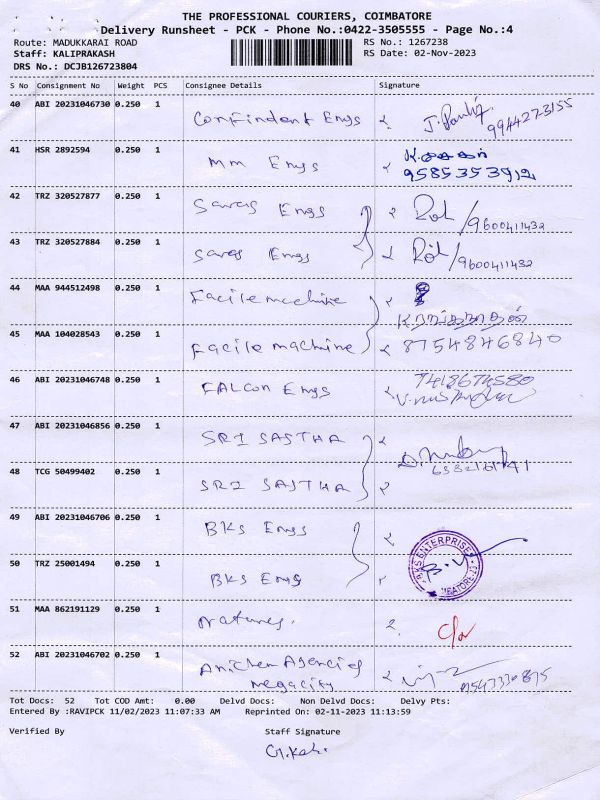 THE PROFESSIONAL COURIERS, COIMBATORE
Delivery Runsheet - PCK - Phone No.:0422-3505555 - Page No.:4
Route: MADUKKARAI ROAD RS No.: 1267238
Staff: KALIPRAKASH RS Date: 02-Nov-2023
DRS No.: DCJB126723804
S No Consignment No Weight PCS Consignee Details Signature
40 ABI 20231046730 0.250 1
Confindent Engs 9944273155
41 HSR 2892594 0.250 1
MM Engs
9585353912
42 TRZ 320527877 0.250 1
Saras Engs /9600411432
43 TRZ 320527884 0.250 1
Saras Engs /9600411432
44 MAA 944512498 0.250 1
Facile machine
45 MAA 104028543 0.250 1
Facile machine 8754846840
46 ABI 20231046748 0.250 1
FALCON Engs
47 ABI 20231046856 0.250 1
SRI SASTHA
48 TCG 50499402 0.250 1
SRI SASTHA
49 ABI 20231046706 0.250 1
BKS Engs
50 TRZ 25001494 0.250 1
BKS Engs
BKS ENTERPRISES
51 MAA 862191129 0.250 1
Natures.
52 ABI 20231046702 0.250 1
Agencies
megacity
Tot Docs: 52 Tot COD Amt: 0.00 Delvd Docs: Non Delvd Docs: Delvy Pts:
Entered By :RAVIPCK 11/02/2023 11:07:33 AM Reprinted On: 02-11-2023 11:13:59
Verified By Staff Signature